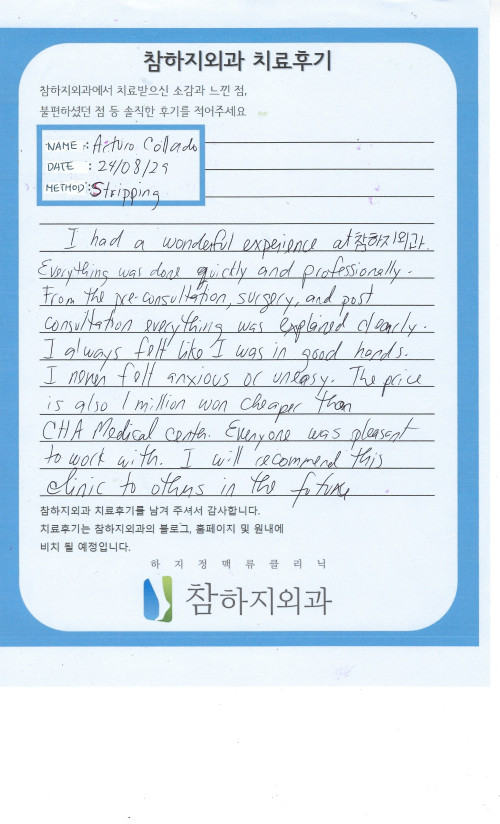 참하지외과 치료후기
참하지외과에서 치료받으신 소감과 느낀 점,
불편하셨던 점 등 솔직한 후기를 적어주세요
NAME : Arturo Collado
DATE : 24/08/29
METHOD : Stripping
I had a wonderful experience at 참하지외과.
Everything was done quickly and professionally.
From the pre-consultation, surgery, and post
consultation everything was explained clearly.
I always felt like I was in good hands.
I never felt anxious or uneasy. The price
is also 1 million won cheaper than
CHA Medical center. Everyone was pleasant
to work with. I will recommend this
clinic to others in the future
참하지외과 치료후기를 남겨 주셔서 감사합니다.
치료후기는 참하지외과의 블로그, 홈페이지 및 원내에
비치 될 예정입니다.
하지정맥류클리닉
참하지외과